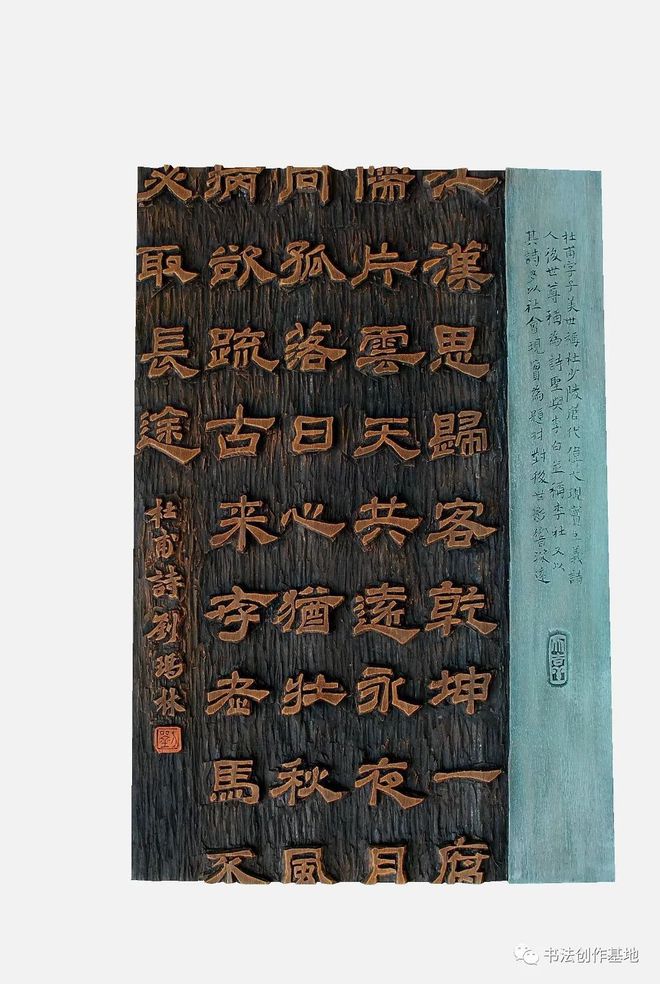 杜甫字子美世稱杜少陵唐代偉大現實主義詩
人後世尊稱為詩聖與李白並稱李杜又以
其詩多以社會現實為題材對後世影響深遠
江漢思歸客乾坤一腐
儒片雲天共遠永夜月
同孤落日心猶壯秋風
病欲疏古来存老馬不
必取長途
杜甫詩劉瑪林
劉
书法创作基地